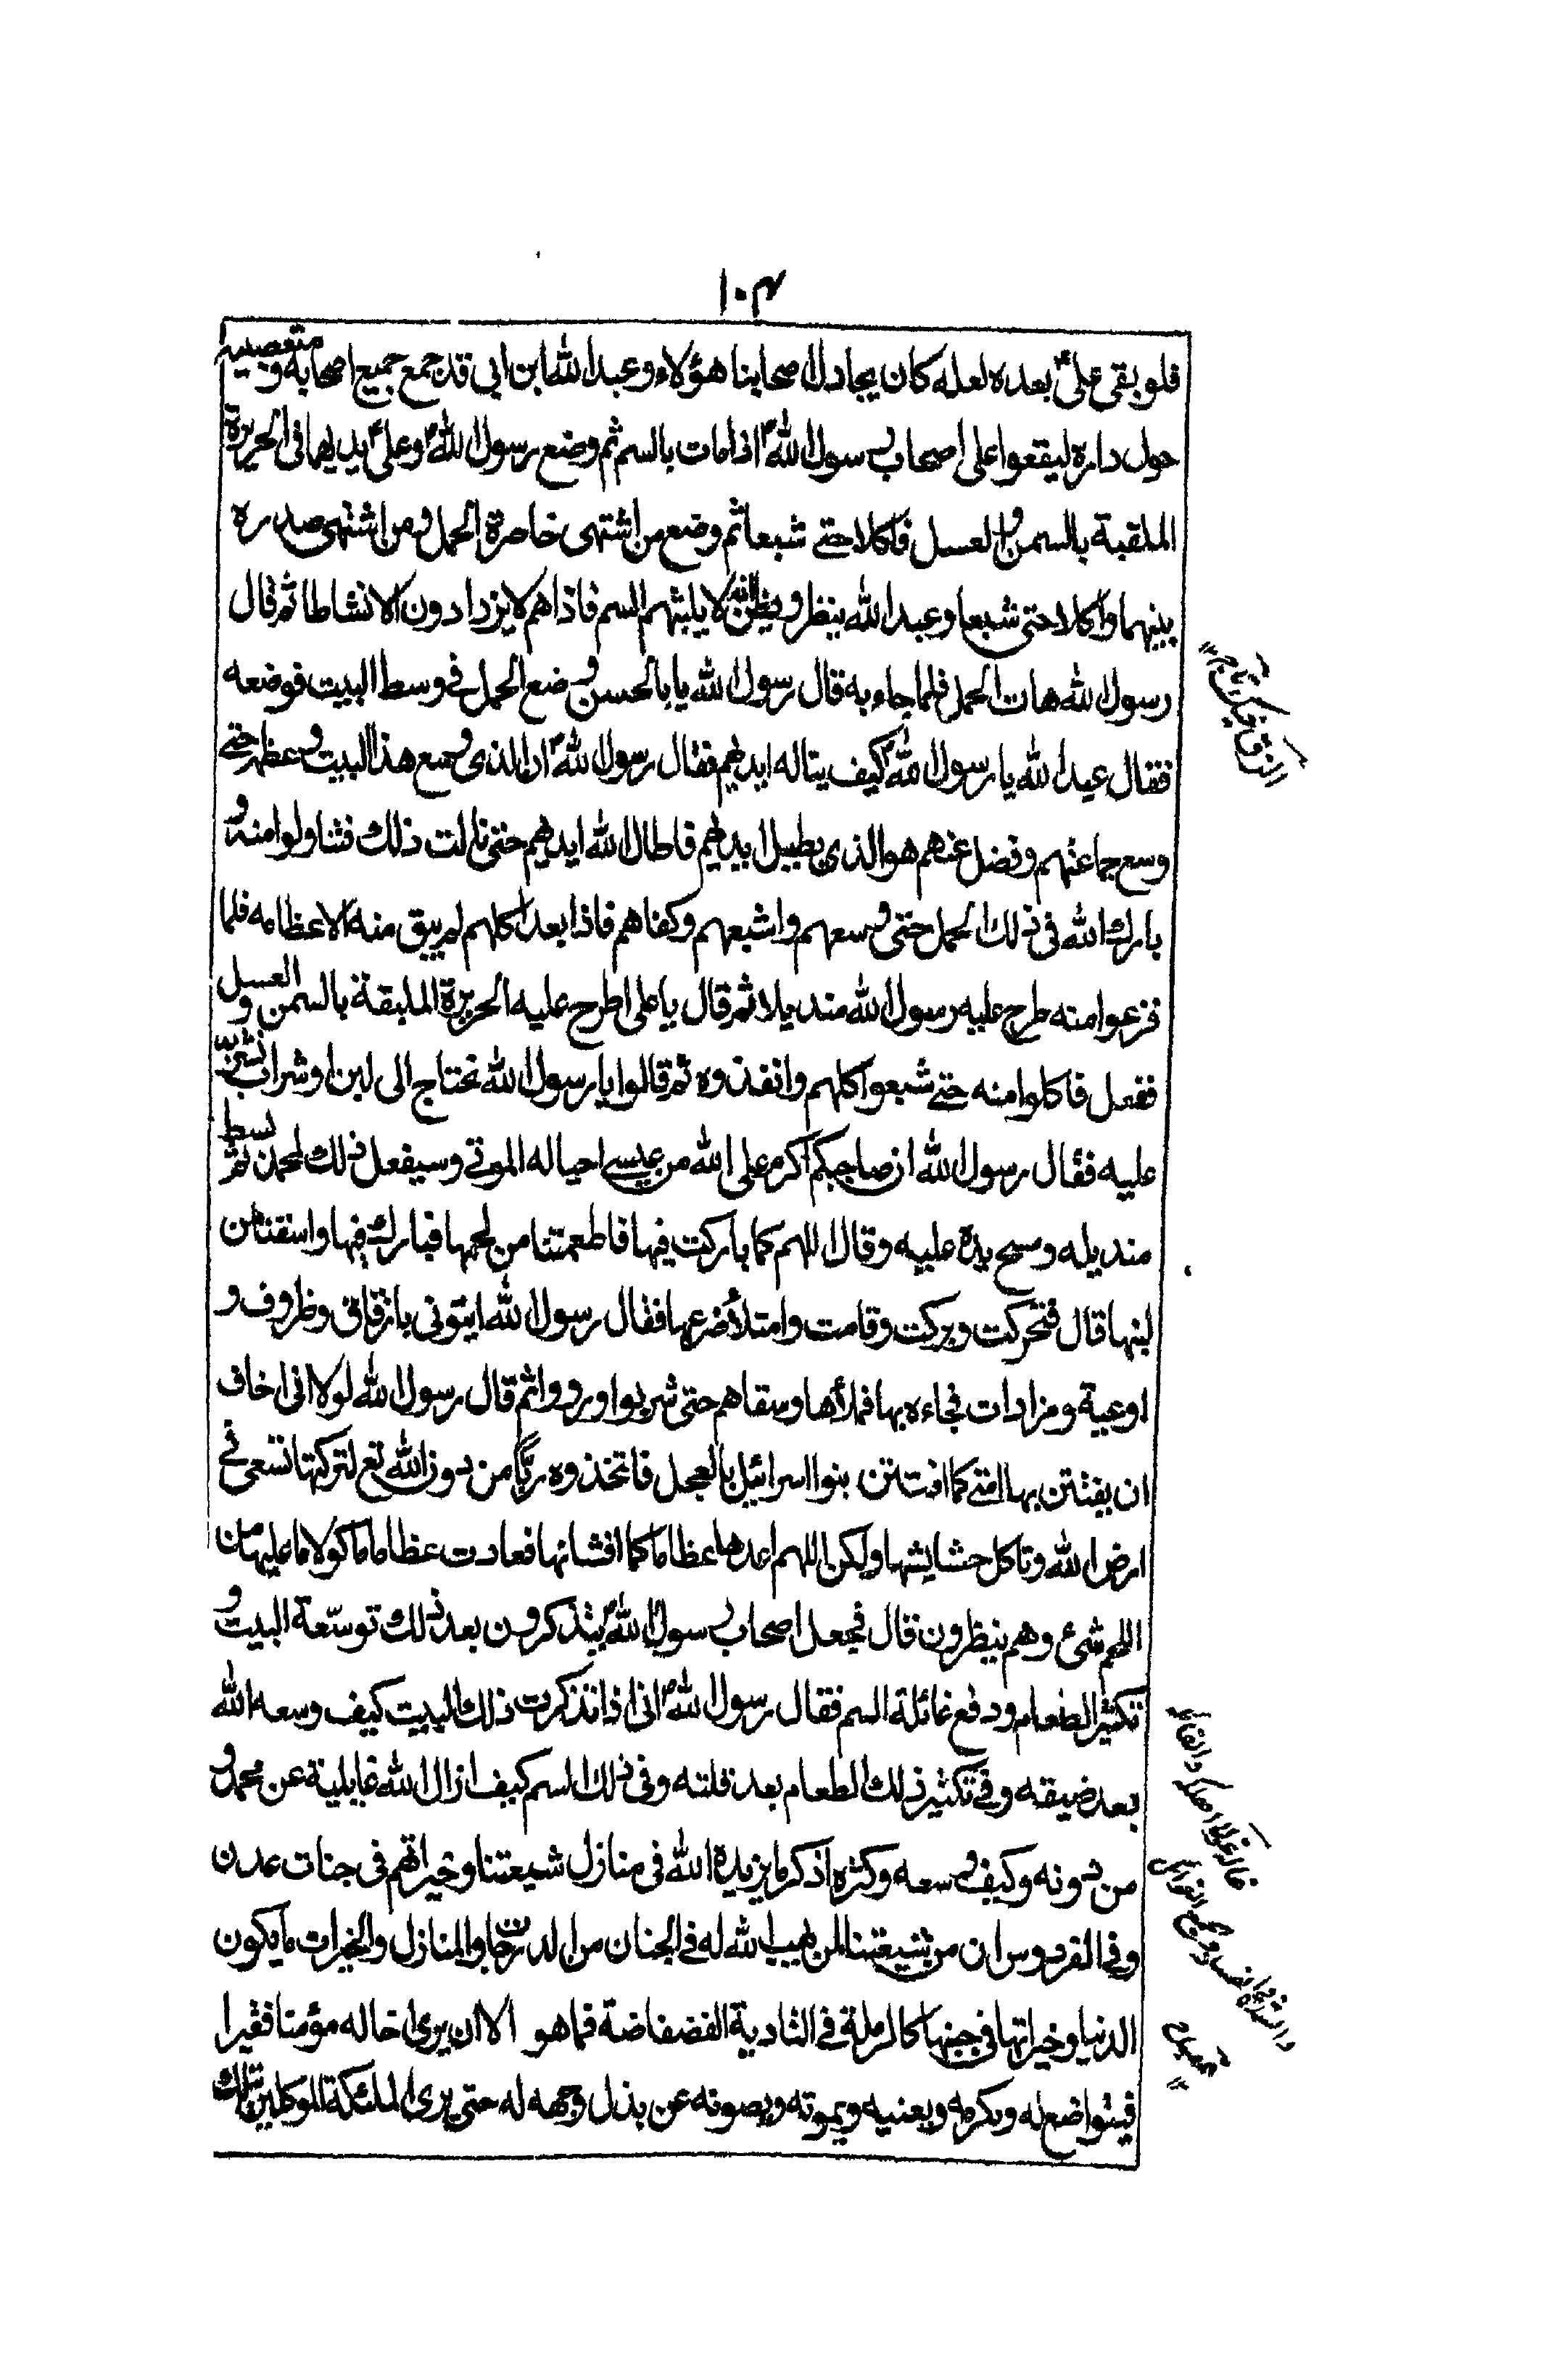 ١٠٣
فلو بقى على بعده لعله كان يجادل اصحابنا هؤلاء وعبد الله ابن ابى قد جمع جميع اصحابه ومتعصبيه
حول داره ليقعوا على اصحاب رسول الله اذا مات بالسم ثم وضع رسول الله وعلى يديهما فى الحريرة
الملقبة بالسمن والعسل فاكلا حتى شبعا ثم وضع من اشتهى خاصرة الحمل ومن اشتهى صدره
بينهما واكلا حتى شبعا وعبد الله ينظر ويظن انه لا يلبثهم السم فاذا هم لا يزدادون الا نشاطا ثم قال
رسول الله هات الحمل فلما جاء به قال رسول الله يا با الحسن وضع الحمل فى وسط البيت فوضعه
فقال عبد الله يا رسول الله كيف يناله ايديهم فقال رسول الله ان الذى وسع هذا البيت وعظمه حتى
وسع جماعتهم وفضل عنهم هو الذى يطيل ايديهم فاطال الله ايديهم حتى نالت ذلك فتناولوا منه و
بارك الله فى ذلك الحمل حتى وسعهم واشبعهم وكفاهم فاذا بعد اكلهم لم يبق منه الا عظامه فلما
فرغوا منه طرح عليه رسول الله منديلا ثم قال يا على اطرح عليه الحريرة الملبقة بالسمن والعسل
ففعل فاكلوا منه حتى شبعوا كلهم وانفذوه ثم قالوا يا رسول الله نحتاج الى لبن او شراب نشربه
عليه فقال رسول الله ان صاحبكم اكرم على الله من عيسى احيا له الموتى وسيفعل ذلك لمحمد ثم بسط
منديله ومسح يده عليه وقال اللهم كما باركت فيها فاطعمتنا من لحمها فبارك فيها واسقنا من
لبنها قال فتحركت وبركت وقامت وامتلأ ضرعها فقال رسول الله ايتونى بازقاق وظروف و
اوعية ومزادات فجاءه بها فملأها وسقاهم حتى شربوا ورووا ثم قال رسول الله لولا انى اخاف
ان يفتتن بها امتى كما افتتن بنوا اسرائيل بالعجل فاتخذوه ربّا من دون الله تع لتركتها تسعى فى
ارض الله وتاكل حشايشها ولكن اللهم اعدها عظاما كما انشانها فعادت عظاما ماكولا ما عليها من
اللحم شىء وهم ينظرون قال فجعل اصحاب رسول الله يتذكرون بعد ذلك توسّعة البيت و
تكثير الطعام ودفع غائلة السم فقال رسول الله انى اذا تذكرت ذلك البيت كيف وسعه الله
بعد ضيقه وفى تكثير ذلك الطعام بعد قلته وفى ذلك السم كيف ازال الله غايلية عن محمد و
من دونه وكيف وسعه وكثره اذكر ما يزيده الله فى منازل شيعتنا وخيراتهم فى جنات عدن
وفى الفردوس ان من شيعتنا لمن يهب الله له فى الجنان من الدرجات والمنازل والخيرات ما يكون
الدنيا وخيراتها فى جنبها كالرملة فى الثادية الفضفاضة فما هو الا ان يرى اخا له مؤمنا فقيرا
فيتواضع له ويكرمه ويعنيه ويموته ويصونه عن بذل وجهه له حتى يرى الملئكة الموكلين بتلك